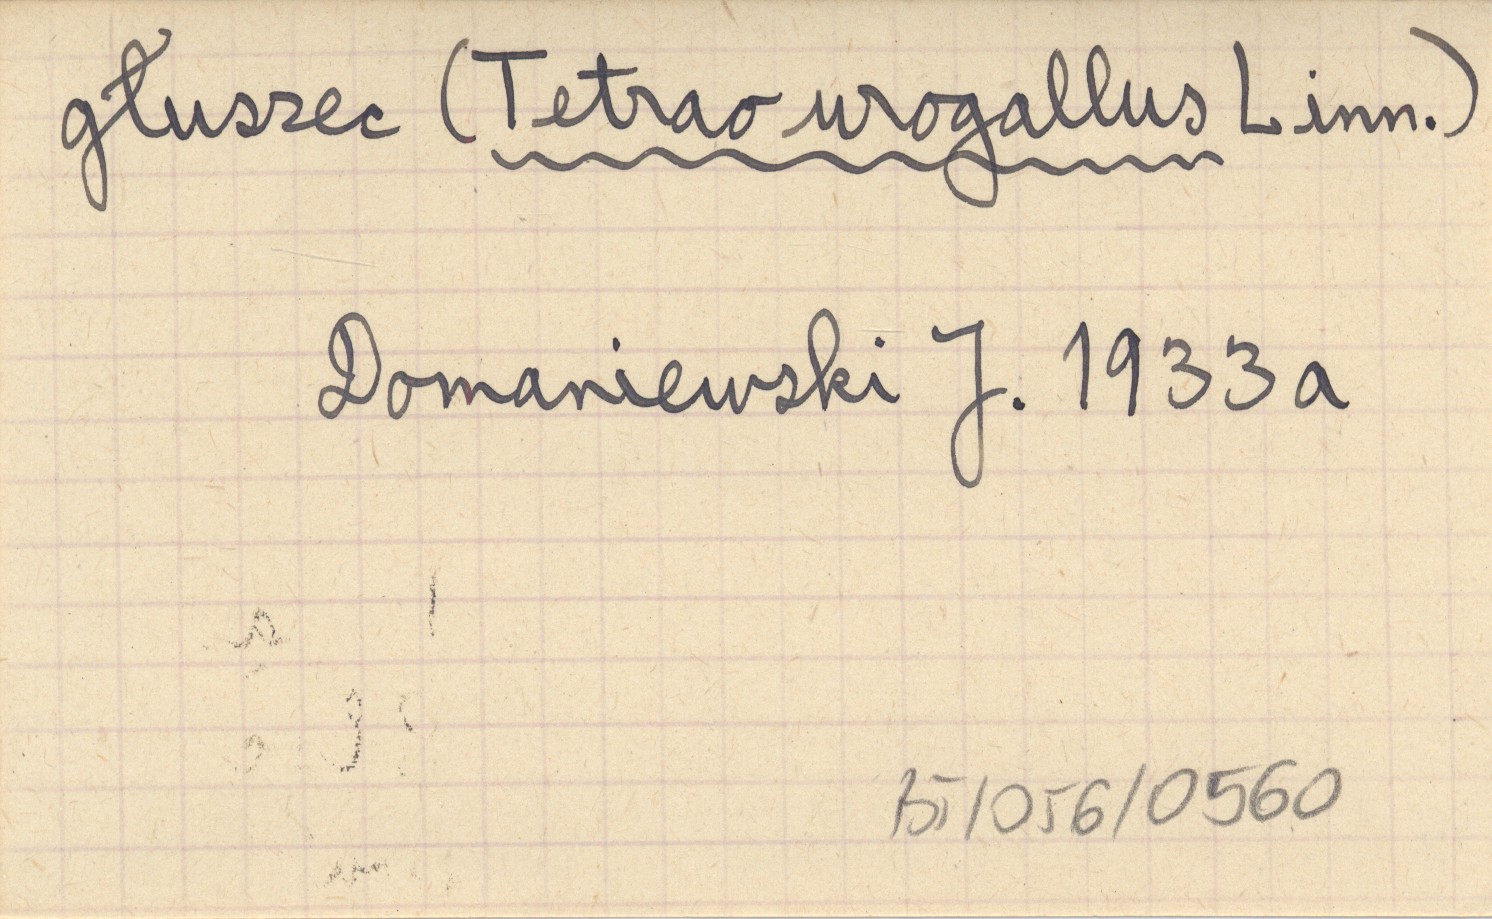 głuszec (Tetrao urogallus Linn.)
Domaniewski J. 1933a
BI/056/0560